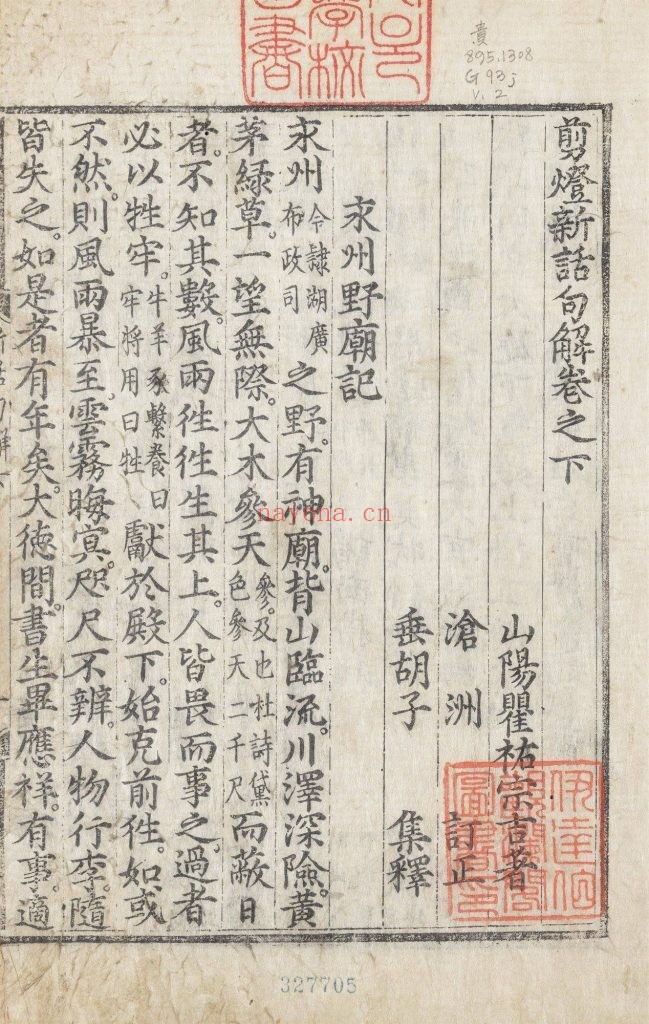 剪燈新話句解卷之下
山陽瞿祐宗吉著
滄洲 訂正
垂胡子 集釋
永州野廟記
永州今隸湖廣布政司之野。有神廟。背山臨流。川澤深險。黃
茅綠草。一望無際。大木參天參。及也杜詩黛色參天二千尺而蔽日
者。不知其數。風雨徃徃生其上。人皆畏而事之。過者
必以牲牢。牛羊豕繫養曰牢將用曰牲獻於殿下。始克前徃。如或
不然。則風雨暴至。雲霧晦冥。咫尺不辨。人物行李。隨
皆失之。如是者有年矣。大德間。書生畢應祥。有事。適
895.1308
G93j
v.2
nayona.cn
327705